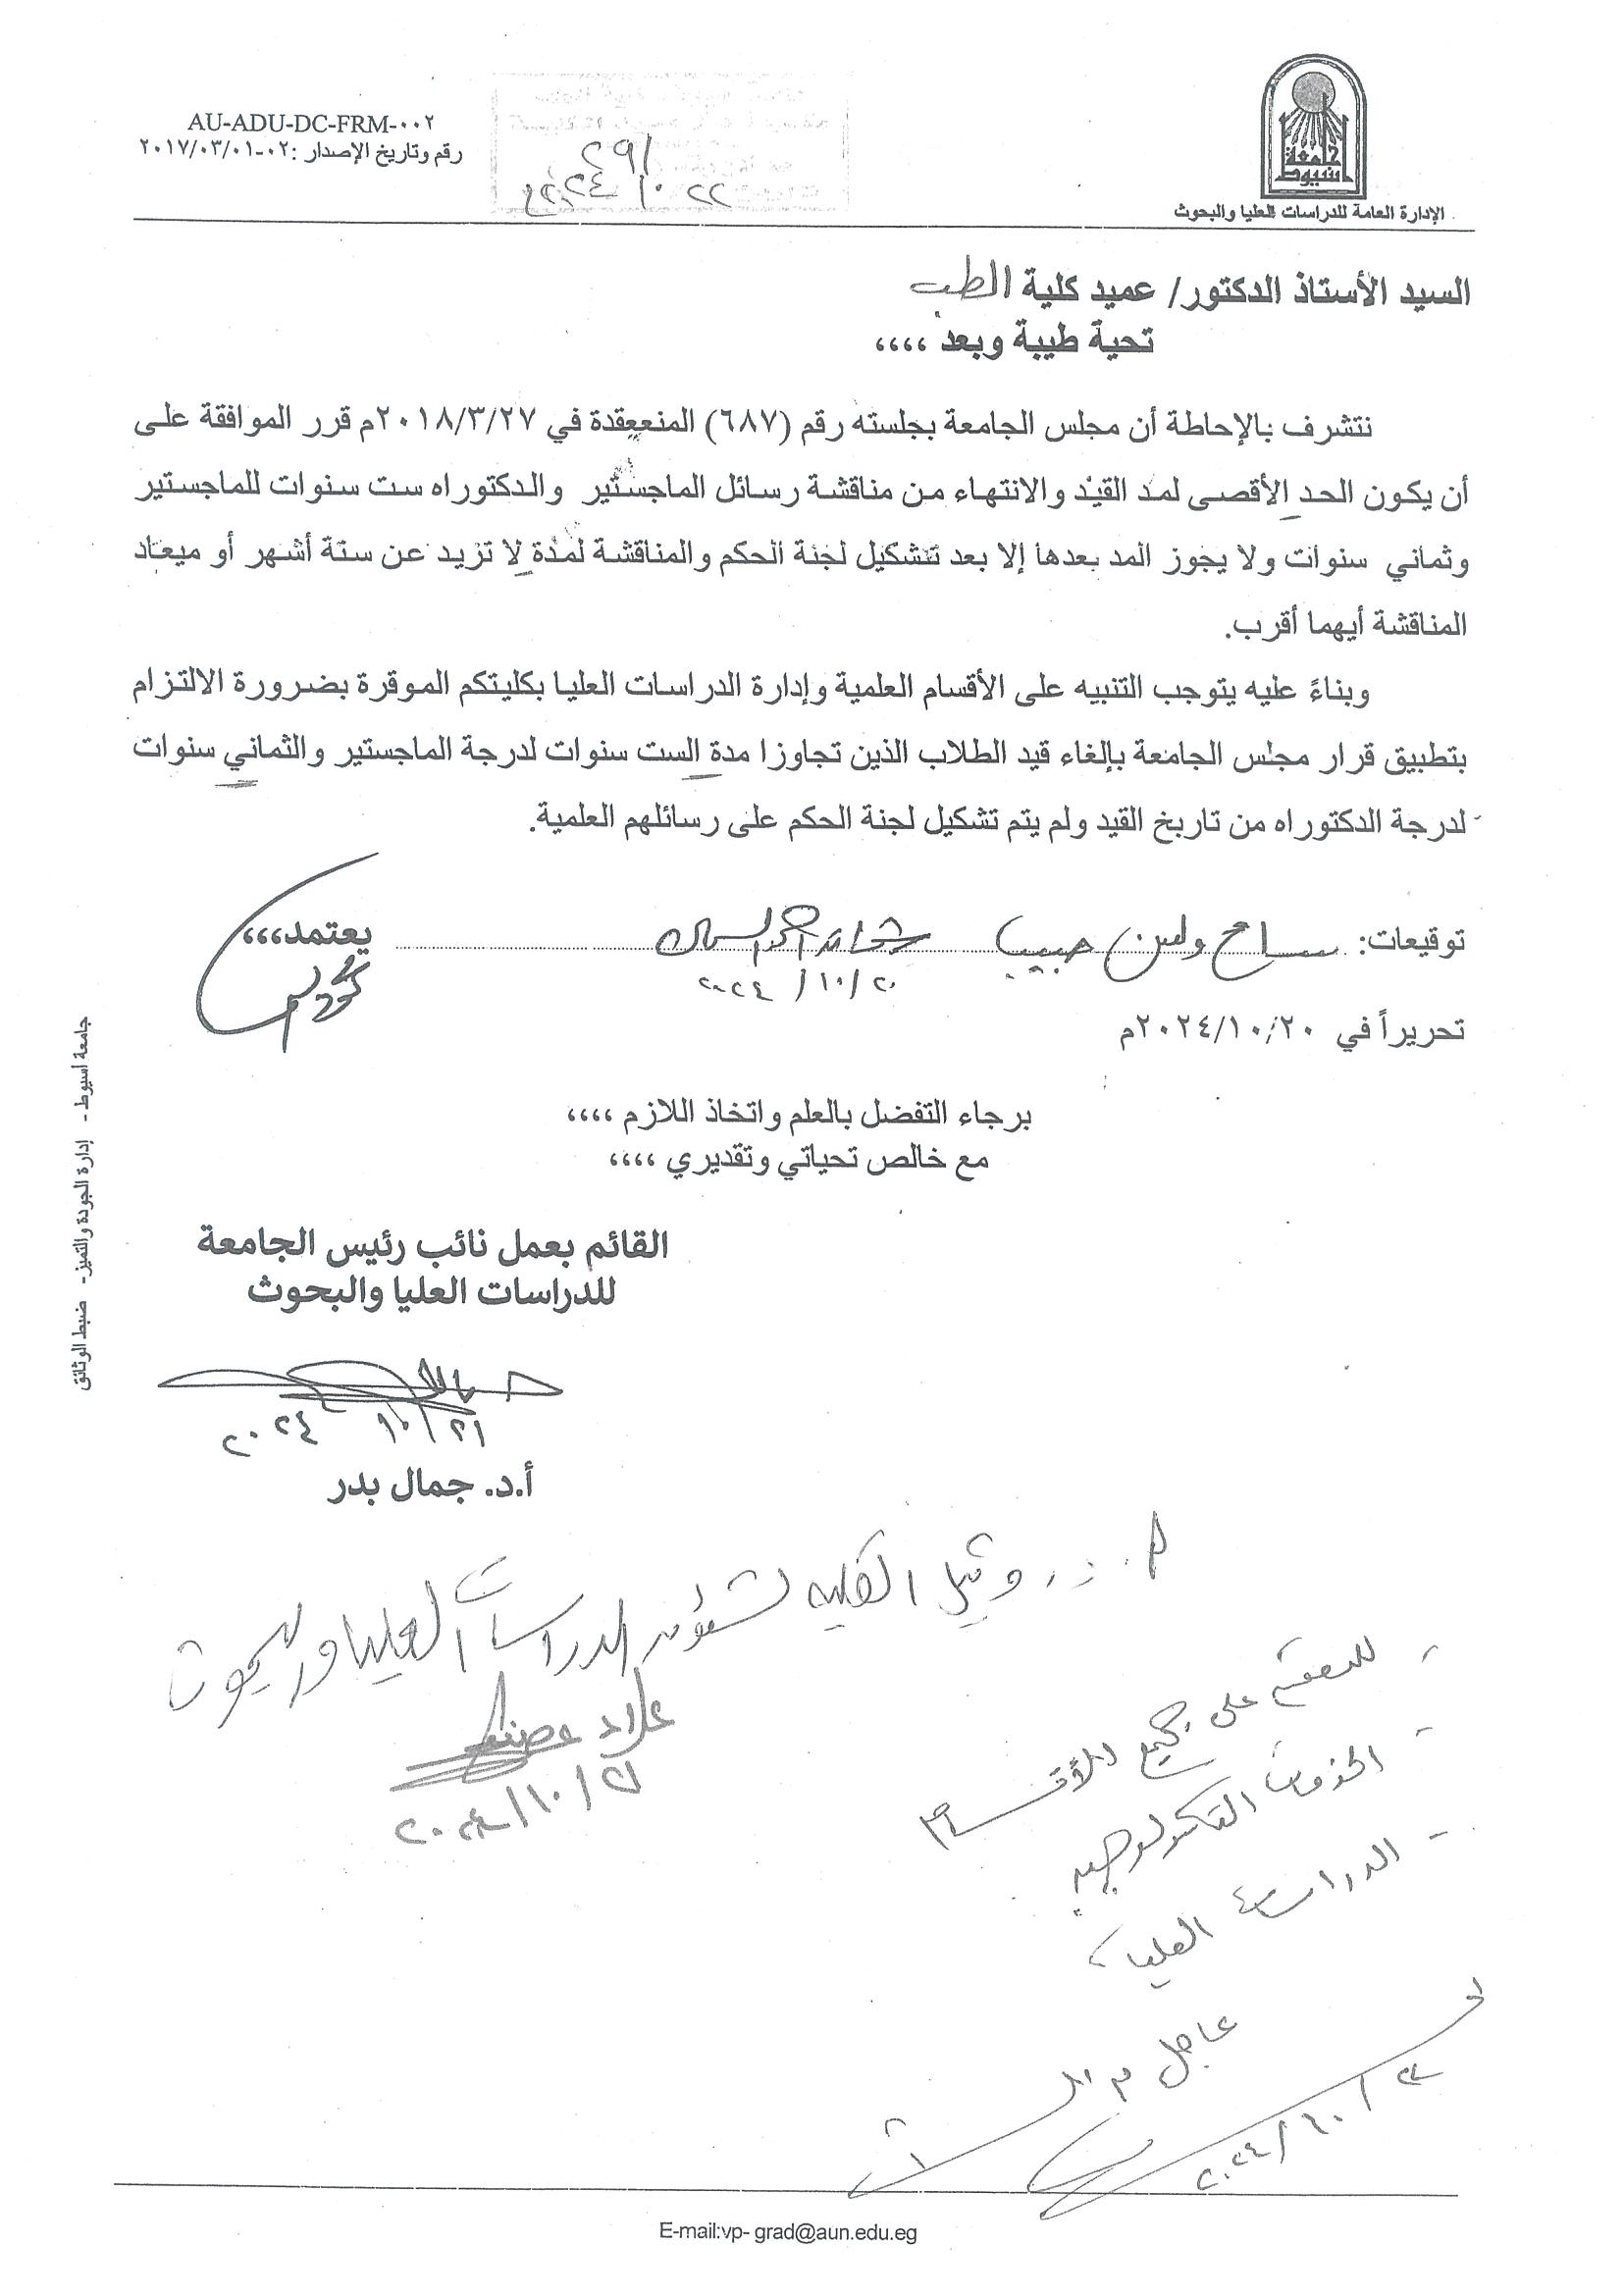 AU-ADU-DC-FRM-٠٠٢
رقم وتاريخ الإصدار :٠٢-٢٠١٧/٠٣/٠١
٢٩/
٢٢ /١٠ /٢٠٢٤
جامعة أسيوط
الإدارة العامة للدراسات العليا والبحوث
السيد الأستاذ الدكتور/ عميد كلية الطب
تحية طيبة وبعد ،،،،
نتشرف بالإحاطة أن مجلس الجامعة بجلسته رقم (٦٨٧) المنععقدة في ٢٠١٨/٣/٢٧م قرر الموافقة على
أن يكون الحد الأقصى لمد القيد والانتهاء من مناقشة رسائل الماجستير والدكتوراه ست سنوات للماجستير
وثماني سنوات ولا يجوز المد بعدها إلا بعد تتشكيل لجنة الحكم والمناقشة لمدة لا تزيد عن ستة أشهر أو ميعاد
المناقشة أيهما أقرب.
وبناءً عليه يتوجب التنبيه على الأقسام العلمية وإدارة الدراسات العليا بكليتكم الموقرة بضرورة الالتزام
بتطبيق قرار مجلس الجامعة بإلغاء قيد الطلاب الذين تجاوزا مدة الست سنوات لدرجة الماجستير والثماني سنوات
لدرجة الدكتوراه من تاريخ القيد ولم يتم تشكيل لجنة الحكم على رسائلهم العلمية.
توقيعات: سامح وليم حبيب يعتمد،،،
٢٠٢٤ /١٠/ ٢٠
تحريراً في ٢٠٢٤/١٠/٢٠م
برجاء التفضل بالعلم واتخاذ اللازم ،،،،
مع خالص تحياتي وتقديري ،،،،
القائم بعمل نائب رئيس الجامعة
للدراسات العليا والبحوث
٢٠٢٤ /١٠/ ٢١
أ.د. جمال بدر
أ.د. وكيل الكلية لشئون الدراسات العليا والبحوث
علاء عطية
٢٠٢٤/١٠/٢١
- على جميع الأقسام
- الخدمات التكنولوجية
- الدراسات العليا
عاجل
٢٠٢٤/١٠/٢٢
جامعة أسيوط - إدارة الجودة والتميز- ضبط الوثائق
E-mail:vp- grad@aun.edu.eg